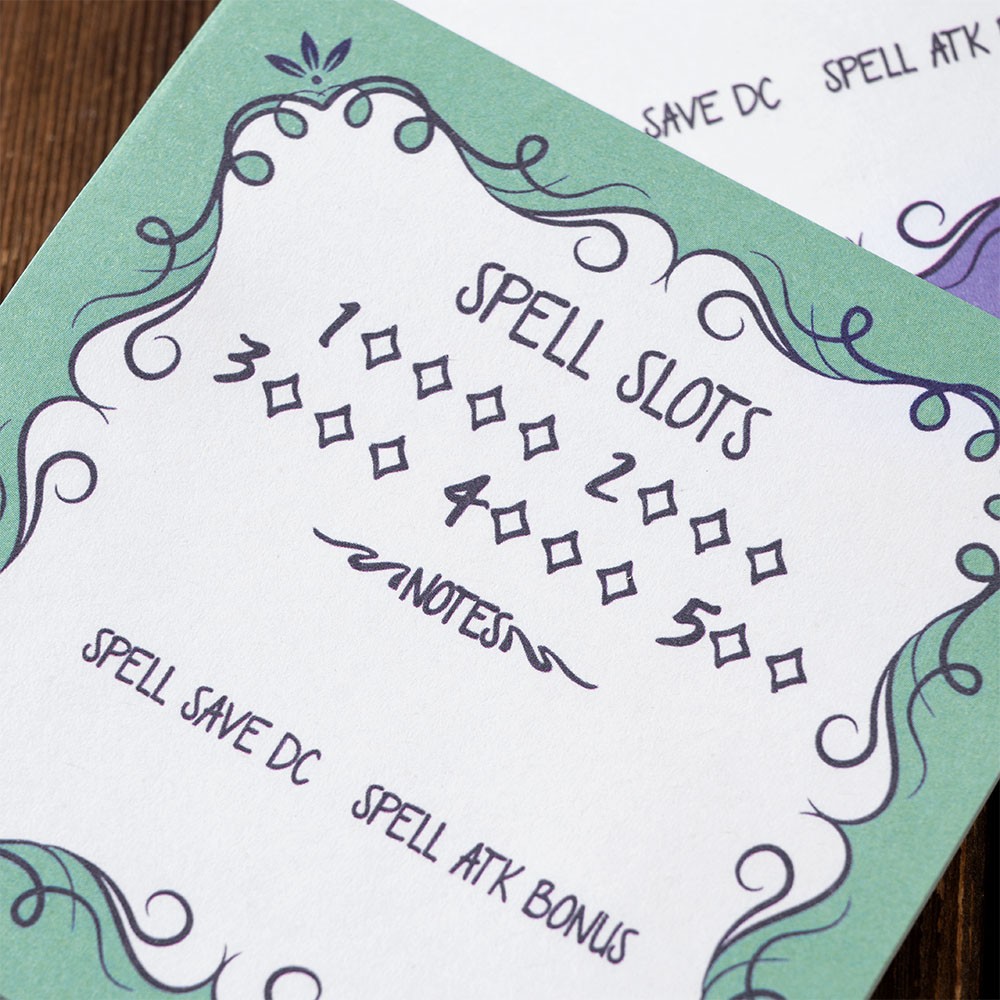 SPELL SLOTS
1 ◇◇◇◇ 2 ◇◇◇
3 ◇◇◇ 4 ◇◇◇ 5 ◇◇
NOTES
SPELL SAVE DC SPELL ATK BONUS
SAVE DC SPELL ATK